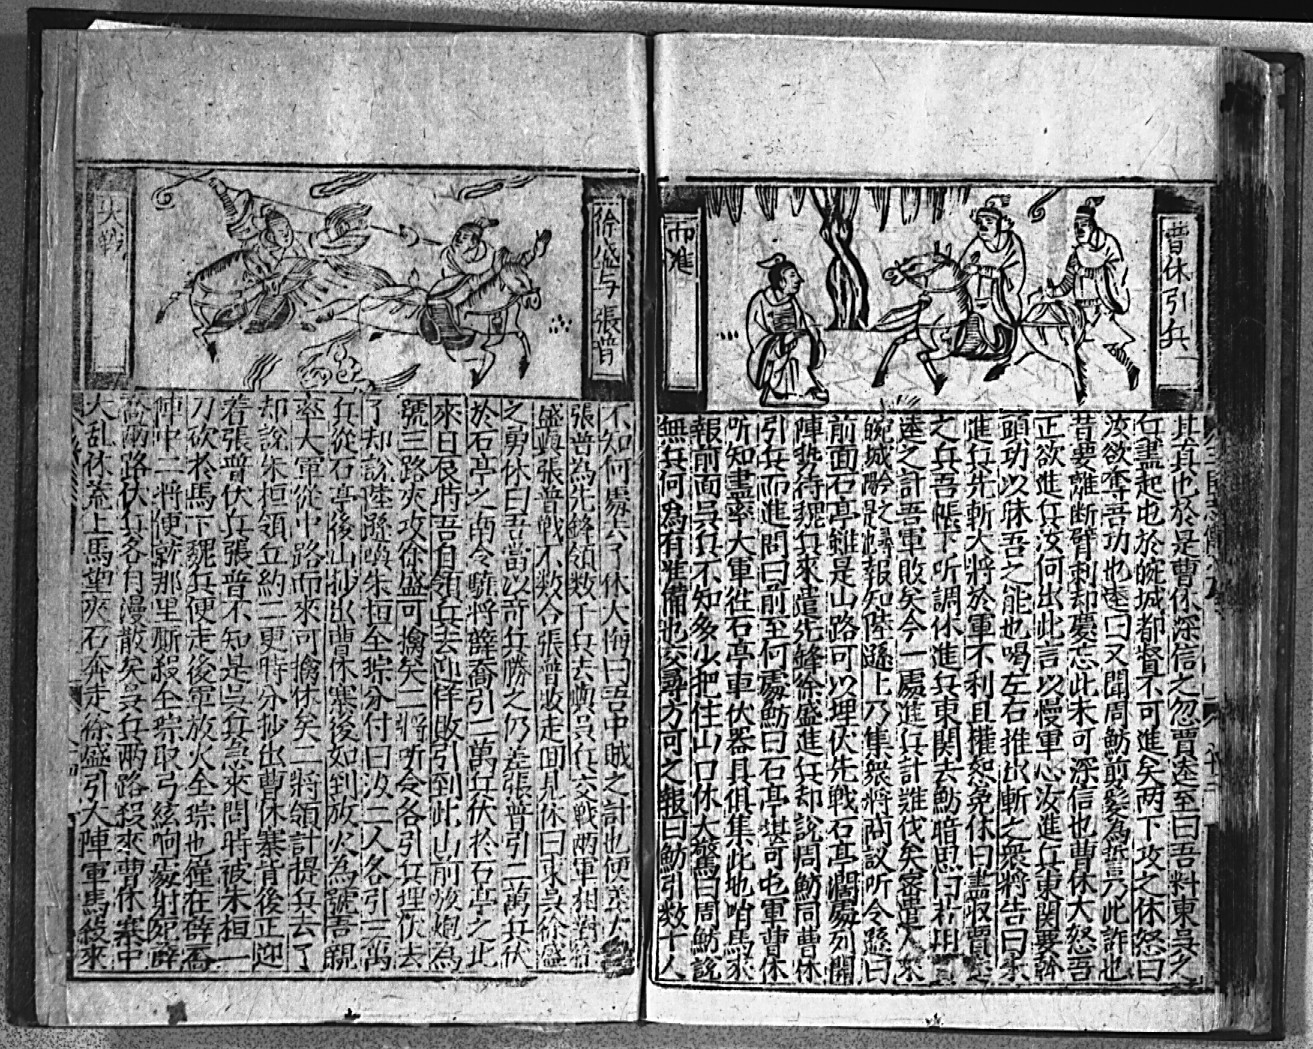 曹休引兵
而進
其真也於是曹休深信之忽賈逵至曰吾料東吳之
兵盡起屯於皖城都督不可進矣两下攻之休怒曰
汝欲奪吾功也逵曰又聞周魴前髮為誓只此詐也
昔要離断臂刺却慶忌此未可深信也曹休大怒吾
正欲進兵汝何出此言以慢軍心汝進兵東関要幹
頭功以昧吾之能也喝左右推出斬之衆將告曰未
進兵先斬大將於軍不利且權恕免休曰盡収賈逵
之兵吾帳下听調休進兵東関去魴暗思曰若用
逵之計吾軍敗矣今一處進兵計進伐矣密遣人來
皖城
前面石亭雖是山路可以埋伏先戰石亭濶處列開
陣勢待魏兵來遣先鋒徐盛進兵却說周魴同曹休
引兵而進問曰前至何處魴曰石亭堪可屯軍曹休
听知盡率大軍往石亭車伏器具俱集此地哨馬來
報前面吳兵不知多少把住山口休大驚曰周魴說
無兵何為有准備也交尋方可之報曰魴引数十人
徐盛与張普
大戰
不知何處去了休大悔曰吾中賊之計也便差大
張普為先鋒領数千兵去與吳兵交戰两軍相對徐
盛與張普戰不数合張普敗走回見休曰東吳徐盛
之勇休曰吾當以奇兵勝之仍差張普引二萬兵伏
於石亭之南令驍將薛喬引二萬兵伏於石亭之北
來日辰時吾自領兵去迎佯敗引到此山前放炮為
號三路夾攻徐盛可擒矣二將听令各引兵埋伏去
了却說陸遜喚朱桓全琮分付曰汝二人各引三萬
兵從石亭後山抄出曹休寨後如到放火為號吾親
率大軍從中路而來可擒休矣二將領計提兵去了
却說朱桓領兵約二更時分抄出曹休寨背後正迎
着張普伏兵張普不知是吳兵急來問時被朱桓一
刀砍於馬下魏兵便走後軍放火全琮也撞在薛喬
陣中二將便就那里厮殺全琮取弓弦响處射死薛
喬两路伏兵各自漫散矣吳兵两路殺來曹休寨中
大乱休荒上馬望夾石奔走徐盛引大陣軍馬殺來